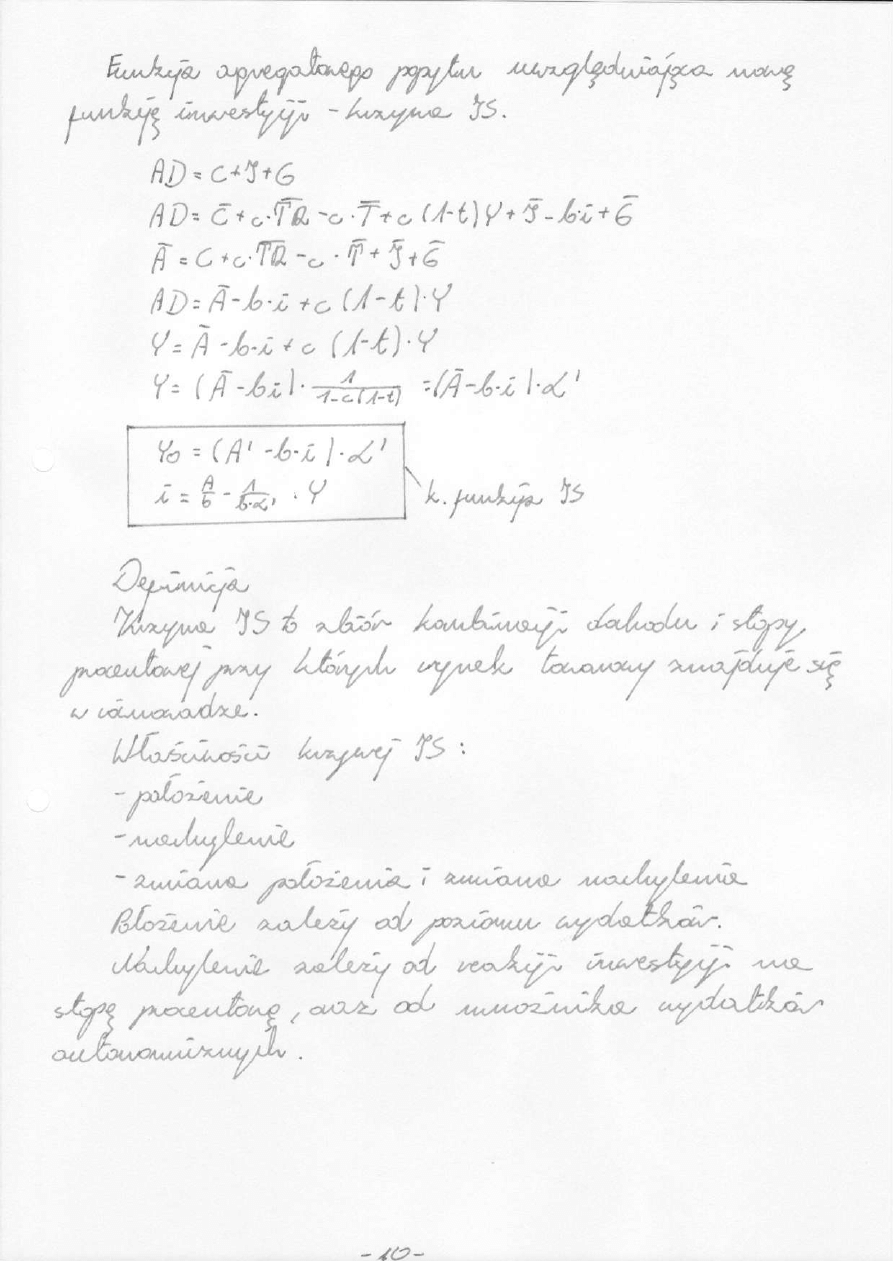 Funkcja agregatowego popytu uwzględniająca nową
funkcję inwestycji - krzywa IS.
AD = C + I + G
AD = C̄ + c·T̄R̄ - c·T̄ + c(1-t)Y + Ī - b·i + Ḡ
Ā = C + c·T̄R̄ - c·T̄ + Ī + Ḡ
AD = Ā - b·i + c(1-t)·Y
Y = Ā - b·i + c(1-t)·Y
Y = (Ā - bi)·1/(1-c(1-t)) = (Ā - b·i)·α'
Y₀ = (A' - b·i)·α'
i = A/b - 1/(b·α')·Y
k. funkcja IS
Definicja
Krzywa IS to zbiór kombinacji dochodu i stopy
procentowej przy których rynek towarowy znajduje się
w równowadze.
Właściwości krzywej IS:
- położenie
- nachylenie
- zmiana położenia i zmiana nachylenia
Położenie zależy od poziomu wydatków.
Nachylenie zależy od reakcji inwestycji na
stopę procentową, oraz od mnożnika wydatków
autonomicznych.
-10-